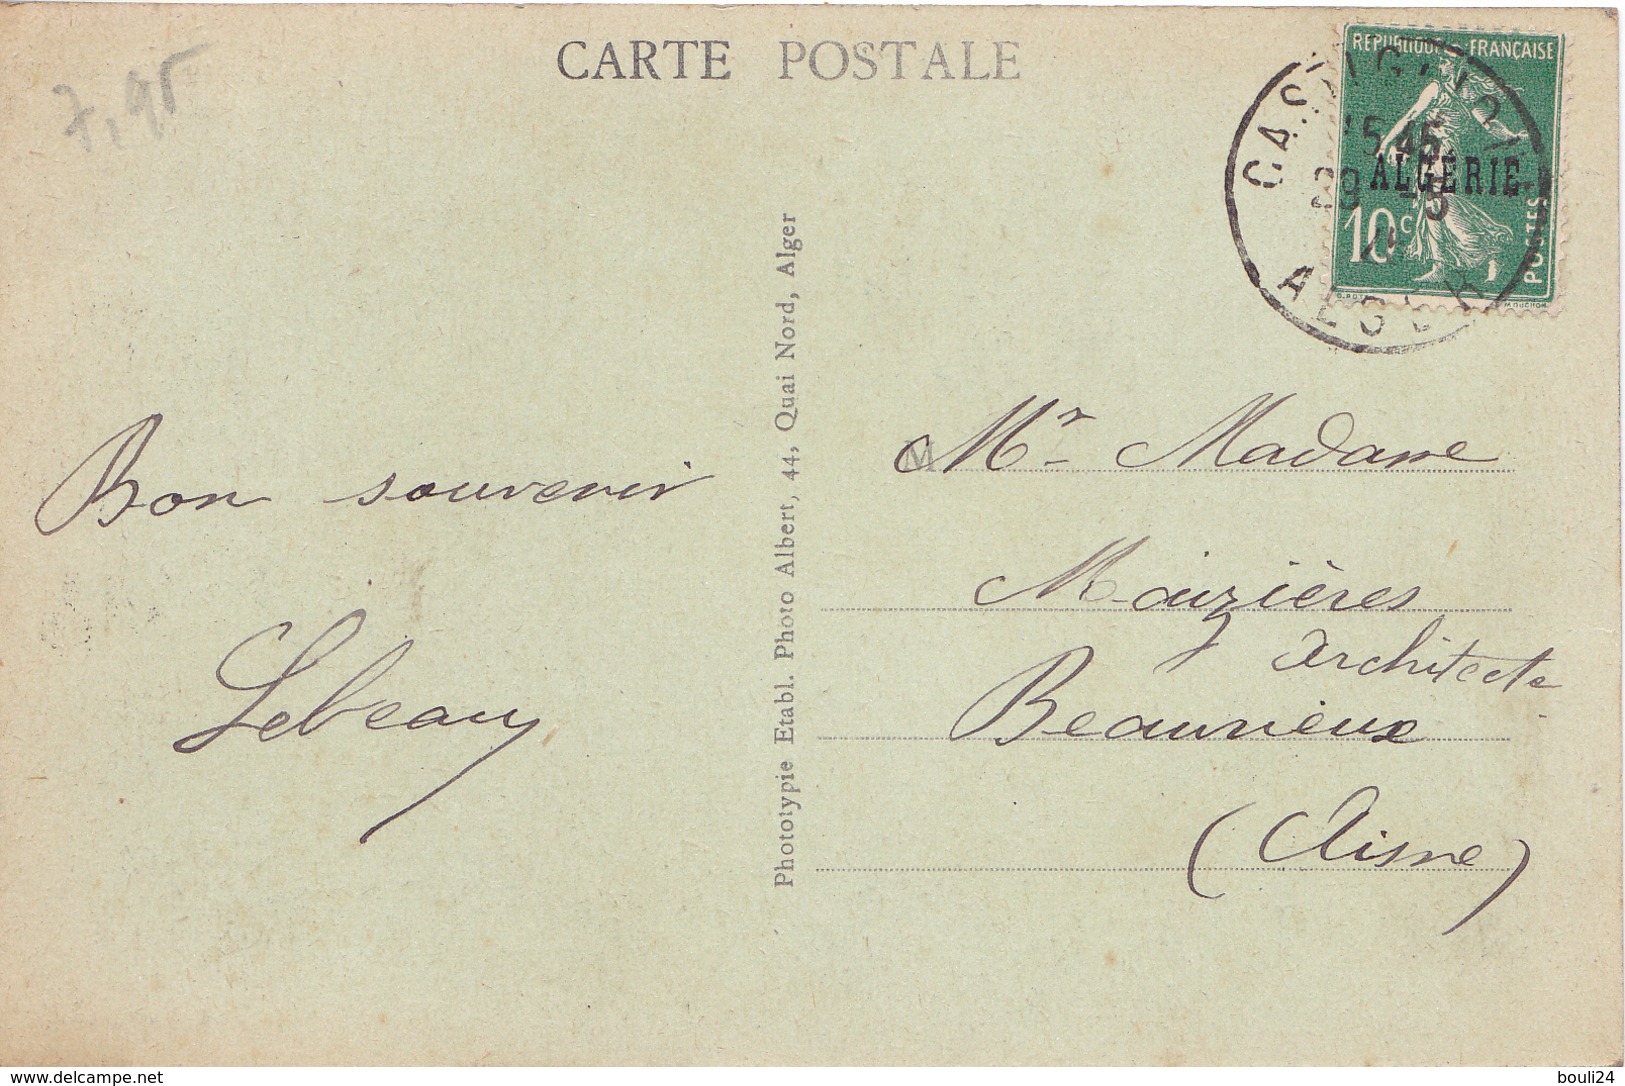 CARTE POSTALE
7,95
REPUBLIQUE FRANÇAISE
ALGÉRIE
10c
POSTES
CASTIGLIONE
15 45
29 -3
ALGER
Bon souvenir
Lebeau
Phototypie Etabl. Photo Albert, 44, Quai Nord, Alger
Mr Madame
Maizières
architecte
Beaurieux
(Aisne)
www.delcampe.net
bouli24